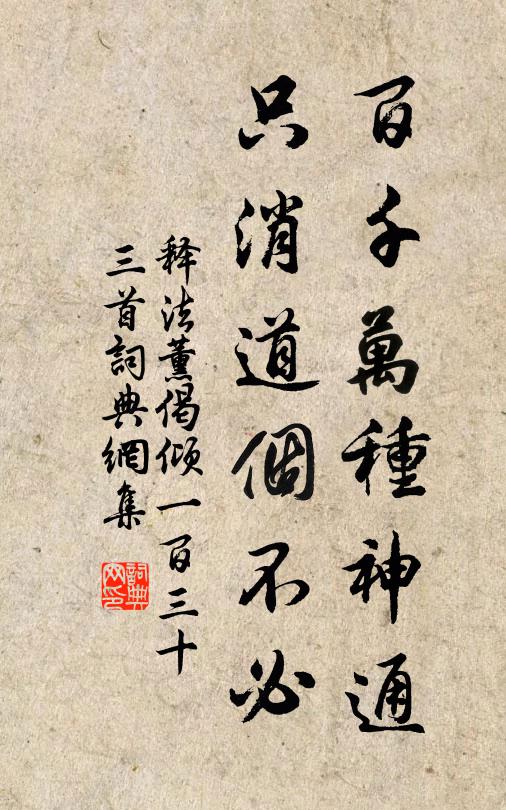 百千萬種神通
只消道個不必
释法薰偈倾一百三十
三首詞典網集
詞典網印